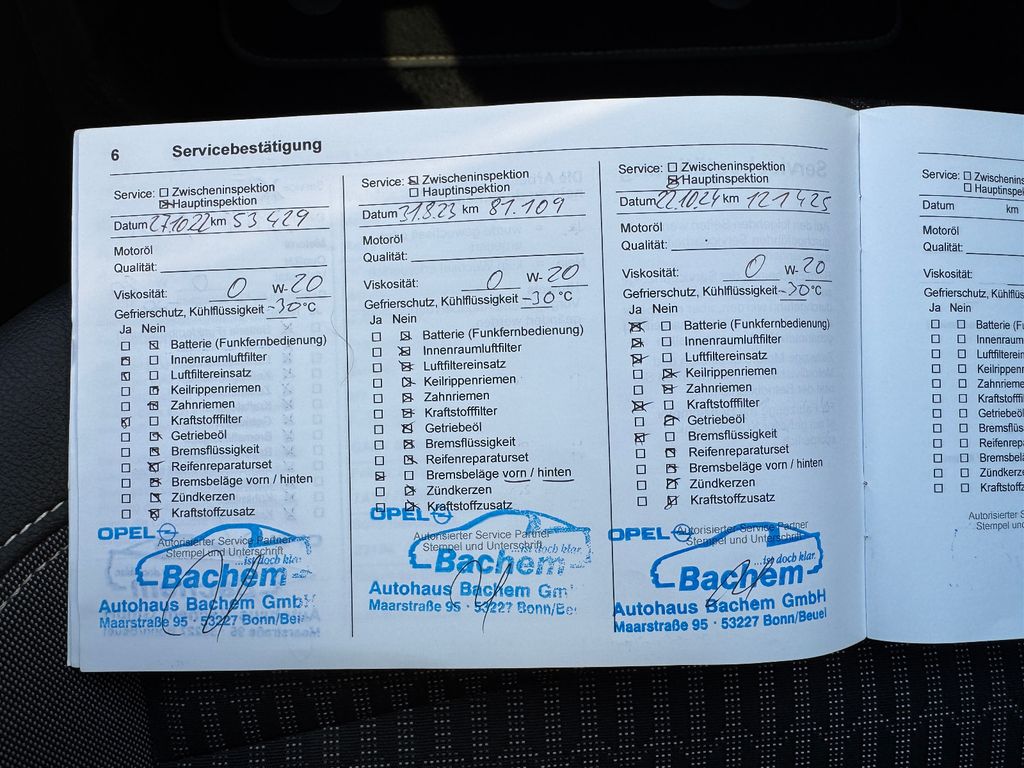 6 Servicebestätigung
Service: ☐ Zwischeninspektion
☒ Hauptinspektion
Datum 27.10.22 km 53429
Motoröl
Qualität:
Viskosität: 0 W-20
Gefrierschutz, Kühlflüssigkeit -30°C
Ja Nein
Batterie (Funkfernbedienung)
Innenraumluftfilter
Luftfiltereinsatz
Keilrippenriemen
Zahnriemen
Kraftstofffilter
Getriebeöl
Bremsflüssigkeit
Reifenreparaturset
Bremsbeläge vorn / hinten
Zündkerzen
Kraftstoffzusatz
OPEL
Autorisierter Service Partner
Stempel und Unterschrift
...ist doch klar.
Bachem
Autohaus Bachem GmbH
Maarstraße 95 · 53227 Bonn/Beu
Service: ☒ Zwischeninspektion
☐ Hauptinspektion
Datum 31.8.23 km 81.109
Motoröl
Qualität:
Viskosität: 0 W-20
Gefrierschutz, Kühlflüssigkeit -30°C
Ja Nein
Batterie (Funkfernbedienung)
Innenraumluftfilter
Luftfiltereinsatz
Keilrippenriemen
Zahnriemen
Kraftstofffilter
Getriebeöl
Bremsflüssigkeit
Reifenreparaturset
Bremsbeläge vorn / hinten
Zündkerzen
Kraftstoffzusatz
OPEL
Autorisierter Service Partner
Stempel und Unterschrift
...ist doch klar.
Bachem
Autohaus Bachem Gm
Maarstraße 95 · 53227 Bonn/Be
Service: ☐ Zwischeninspektion
☒ Hauptinspektion
Datum 22.10.24 km 121425
Motoröl
Qualität:
Viskosität: 0 W-20
Gefrierschutz, Kühlflüssigkeit -30°C
Ja Nein
Batterie (Funkfernbedienung)
Innenraumluftfilter
Luftfiltereinsatz
Keilrippenriemen
Zahnriemen
Kraftstofffilter
Getriebeöl
Bremsflüssigkeit
Reifenreparaturset
Bremsbeläge vorn / hinten
Zündkerzen
Kraftstoffzusatz
OPEL
Autorisierter Service Partner
Stempel und Unterschrift
...ist doch klar.
Bachem
Autohaus Bachem GmbH
Maarstraße 95 · 53227 Bonn/Beuel
Service: ☐ Zwischenins
☐ Hauptinspe
Datum km
Motoröl
Qualität:
Viskosität:
Gefrierschutz, Kühlflüss
Ja Nein
Batterie (F
Innenraum
Luftfilterein
Keilrippen
Zahnrieme
Kraftstofff
Getriebeöl
Bremsflüss
Reifenrepa
Bremsbelä
Zündkerze
Kraftstoffz
Autorisierter S
Stempel und